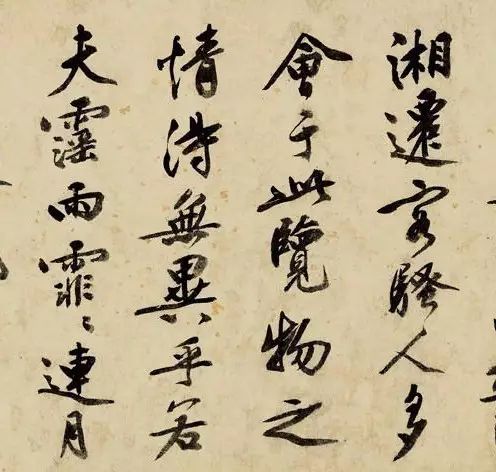 湘遷客騷人多
會于此覽物之
情得無異乎若
夫霪雨霏〻連月